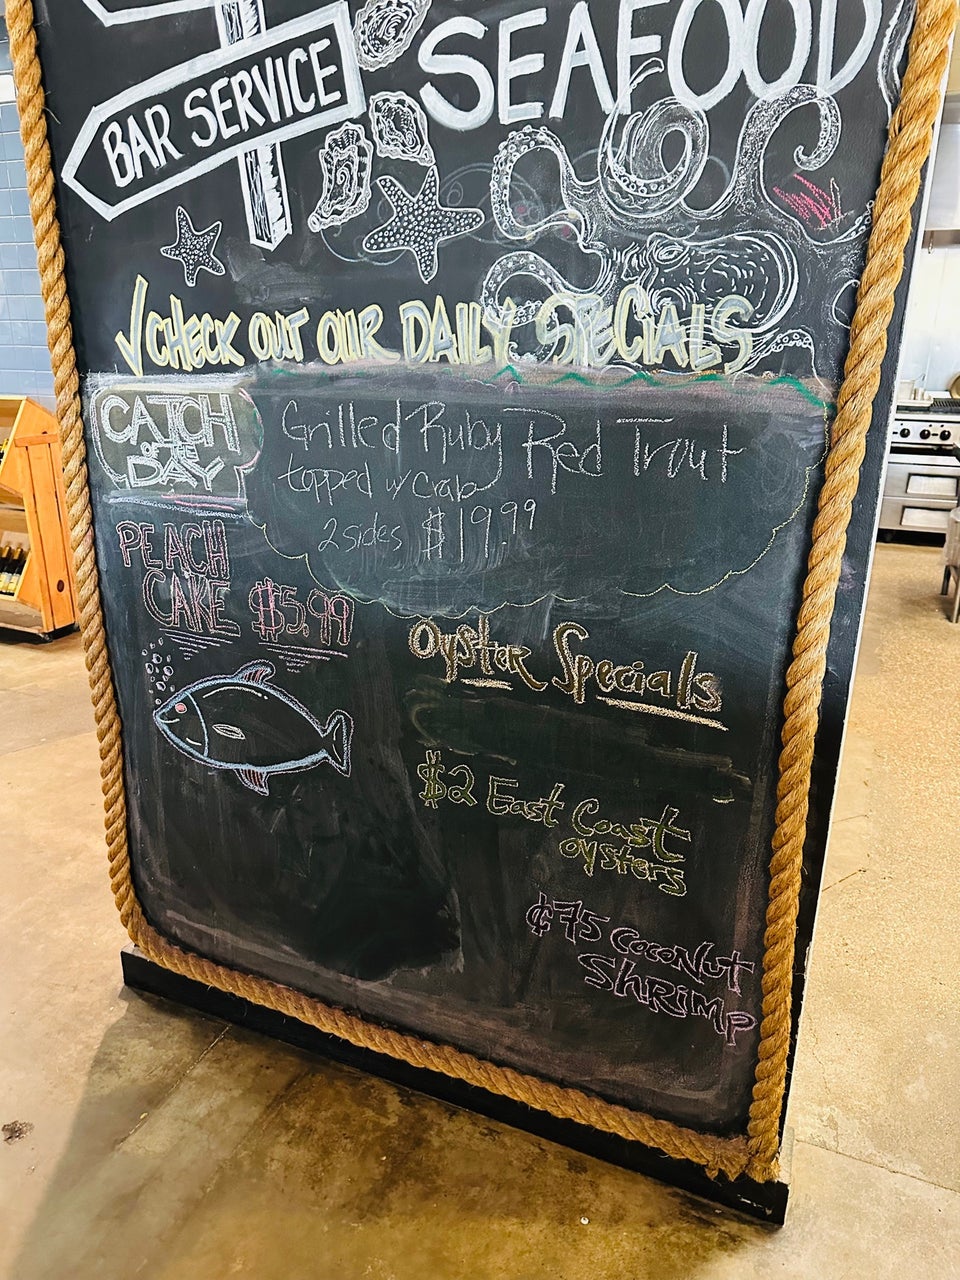 BAR SERVICE
SEAFOOD
✓CHECK OUT OUR DAILY SPECIALS
CATCH
OF THE
DAY
Grilled Ruby Red Trout
topped w/ Crab
2 sides $19.99
PEACH
CAKE $5.99
Oyster Specials
$2 East Coast
oysters
¢75 Coconut
Shrimp